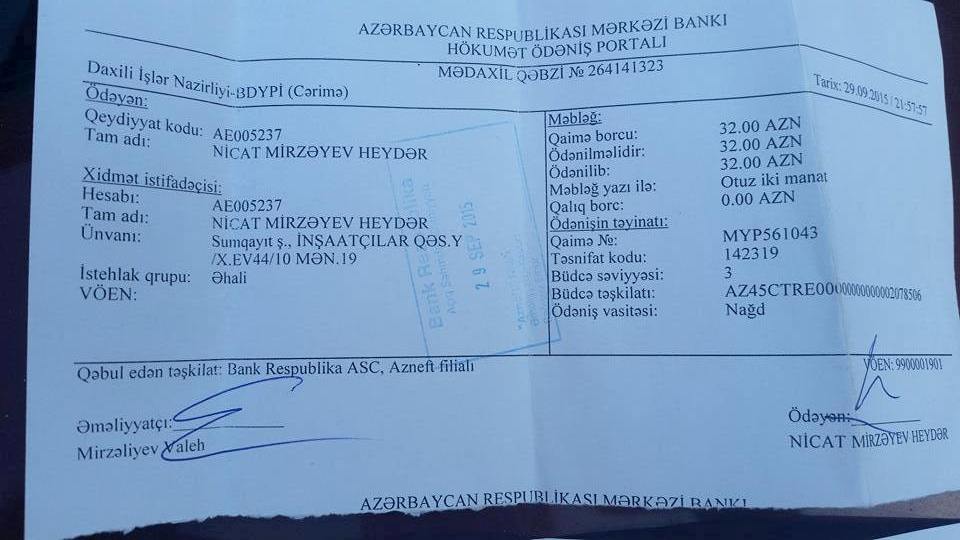 AZƏRBAYCAN RESPUBLİKASI MƏRKƏZİ BANKI
HÖKUMƏT ÖDƏNİŞ PORTALI
MƏDAXİL QƏBZİ № 264141323
Daxili İşlər Nazirliyi-BDYPİ (Cərimə)
Tarix: 29.09.2015 / 21:57:57
Ödəyən:
Qeydiyyat kodu: AE005237
Tam adı: NİCAT MİRZƏYEV HEYDƏR
Xidmət istifadəçisi:
Hesabı: AE005237
Tam adı: NİCAT MİRZƏYEV HEYDƏR
Ünvanı: Sumqayıt ş., İNŞAATÇILAR QƏS.Y
/X.EV44/10 MƏN.19
İstehlak qrupu: Əhali
VÖEN:
Məbləğ:
Qaimə borcu: 32.00 AZN
Ödənilməlidir: 32.00 AZN
Ödənilib: 32.00 AZN
Məbləğ yazı ilə: Otuz iki manat
Qalıq borc: 0.00 AZN
Ödənişin təyinatı:
Qaimə №: MYP561043
Təsnifat kodu: 142319
Büdcə səviyyəsi: 3
Büdcə təşkilatı: AZ45CTRE00000000000002078506
Ödəniş vasitəsi: Nağd
Bank Respublika
29 SEP 2015
Qəbul edən təşkilat: Bank Respublika ASC, Azneft filialı
VÖEN: 9900001901
Əməliyyatçı:
Mirzəliyev Valeh
Ödəyən:
NİCAT MİRZƏYEV HEYDƏR
AZƏRBAYCAN RESPUBLİKASI MƏRKƏZİ BANKI